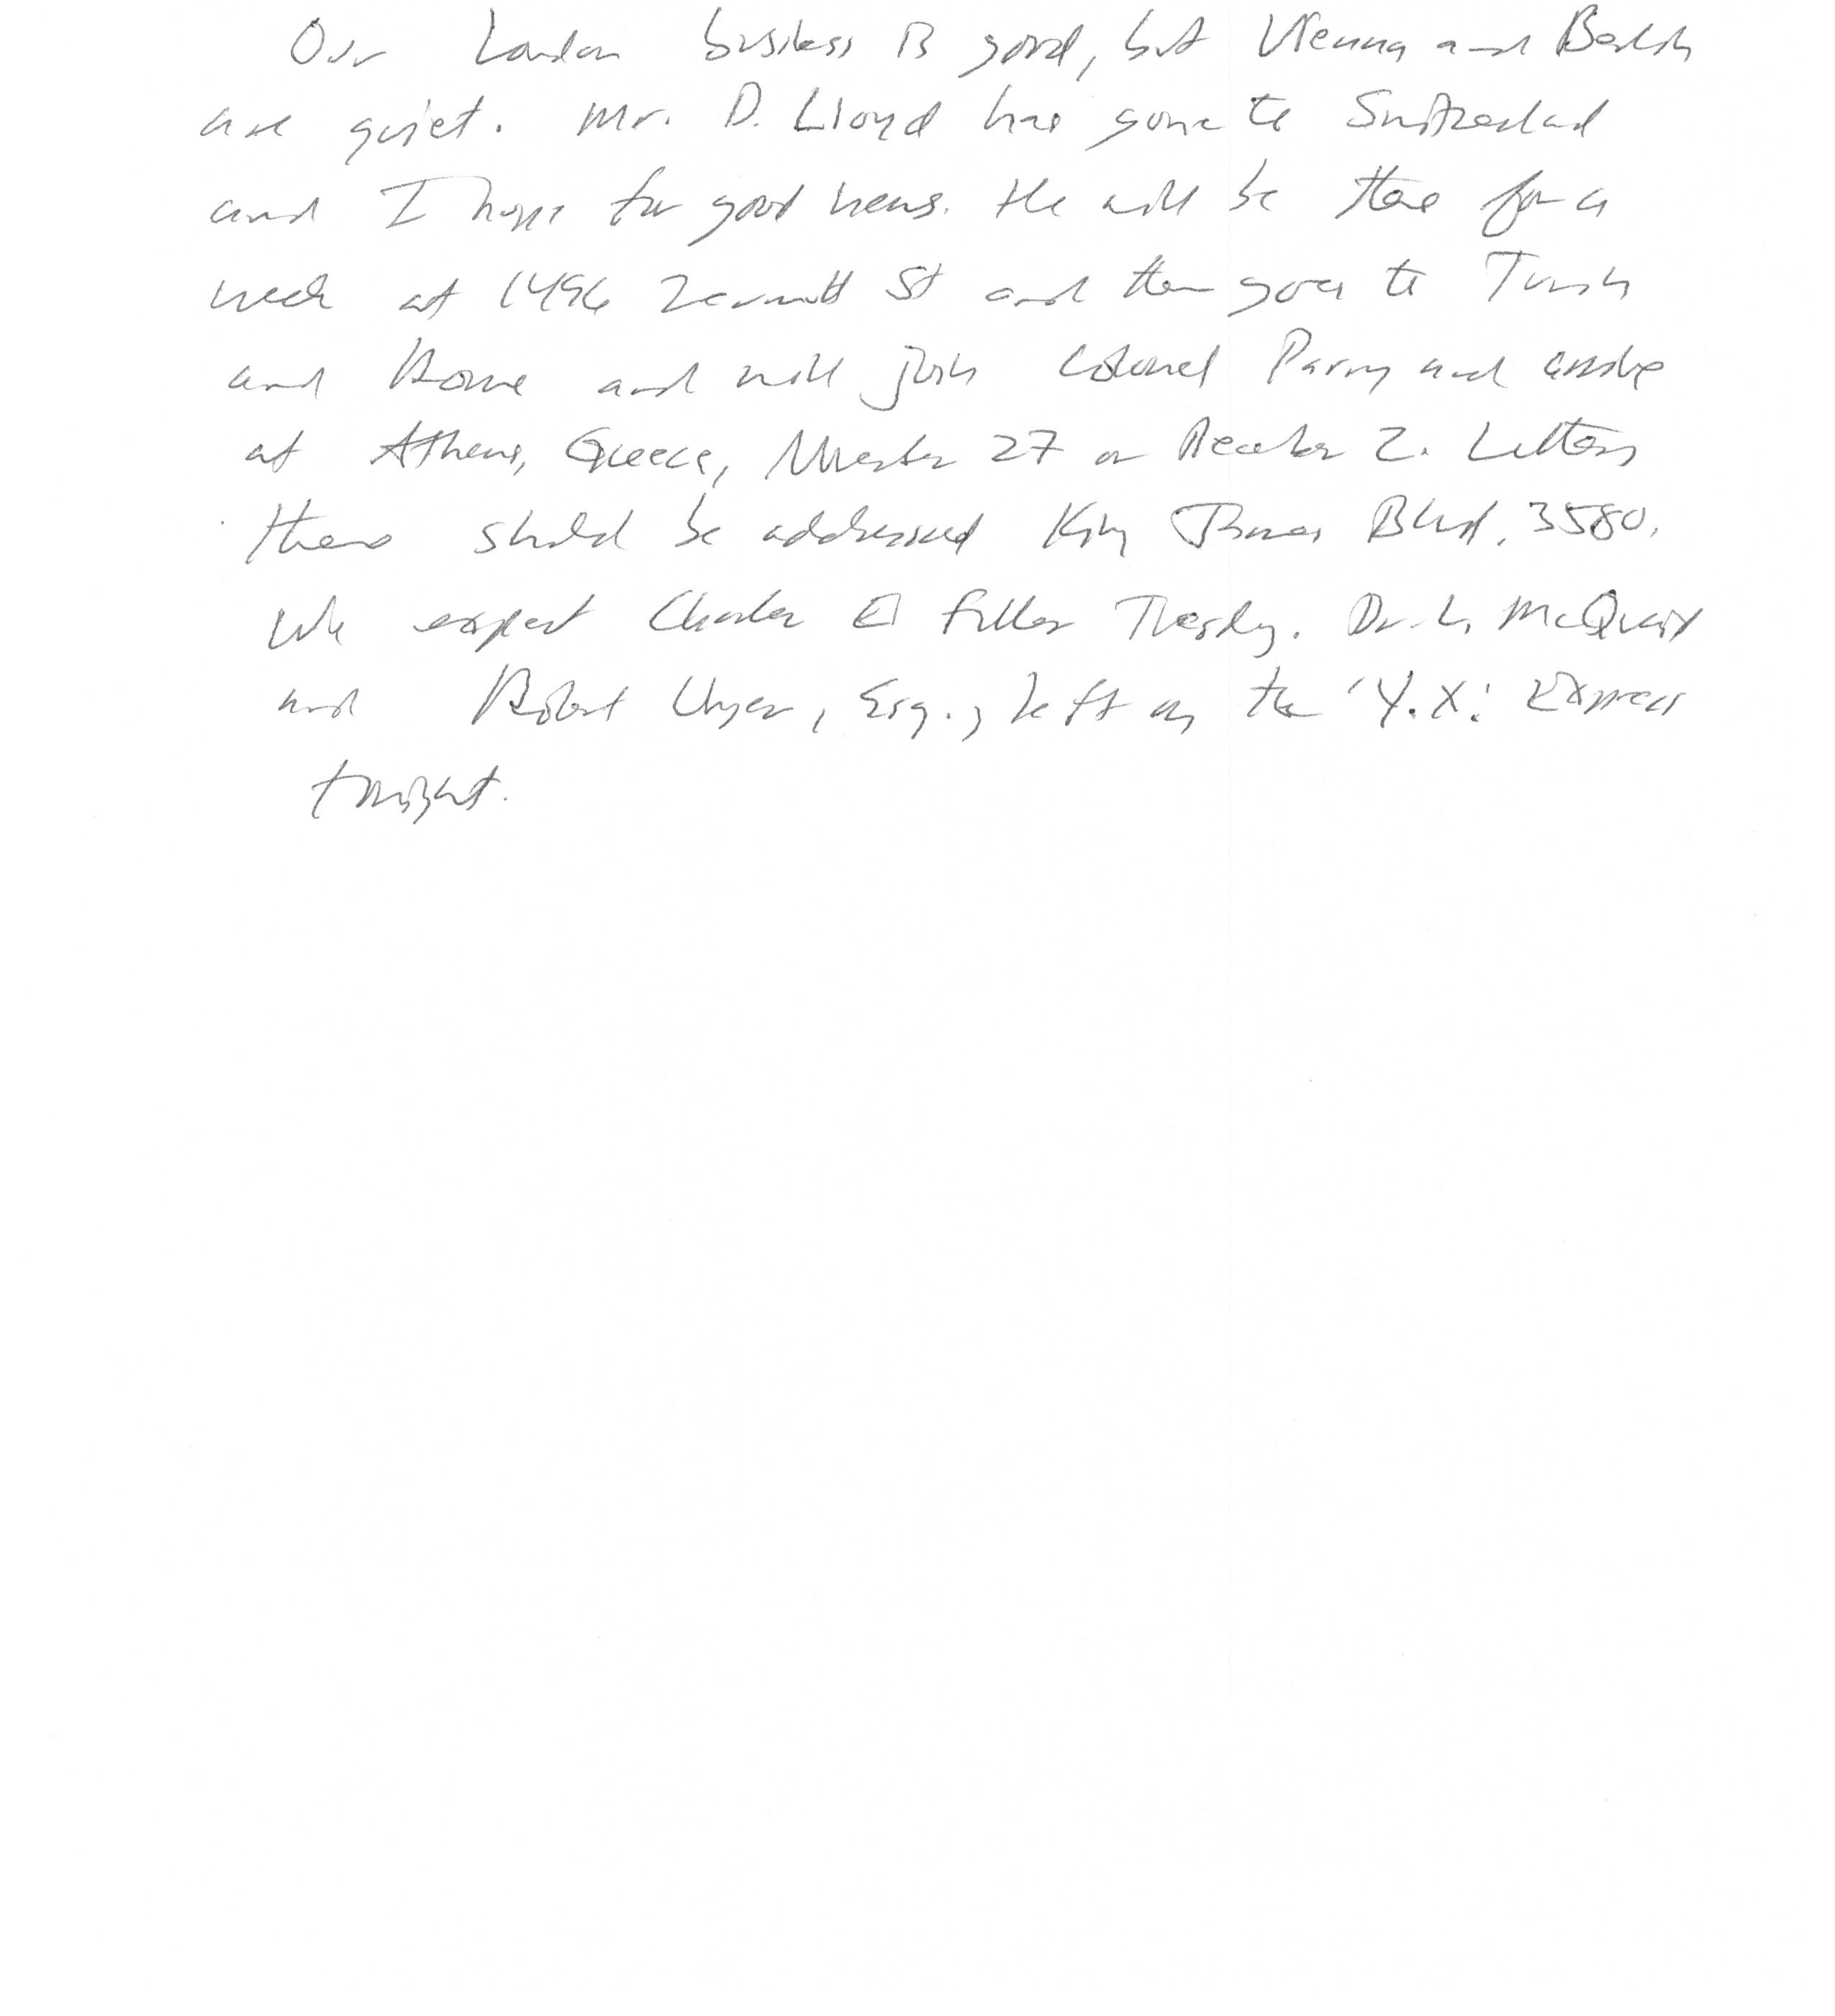 Our London business is good, but Vienna and Berlin
are quiet. Mr. D. Lloyd has gone to Switzerland
and I hope for good news. He will be there for a
week at 1496 Zermott St and then goes to Turin
and Rome and will join Colonel Parry and arrive
at Athens, Greece, November 27 or December 2. Letters
there should be addressed King James Blvd. 3580.
We expect Charles E Fuller Tuesday. Dr. L. McQuaid
and Robert Unger, Esq., left on the 'Y.X.' Express
tonight.